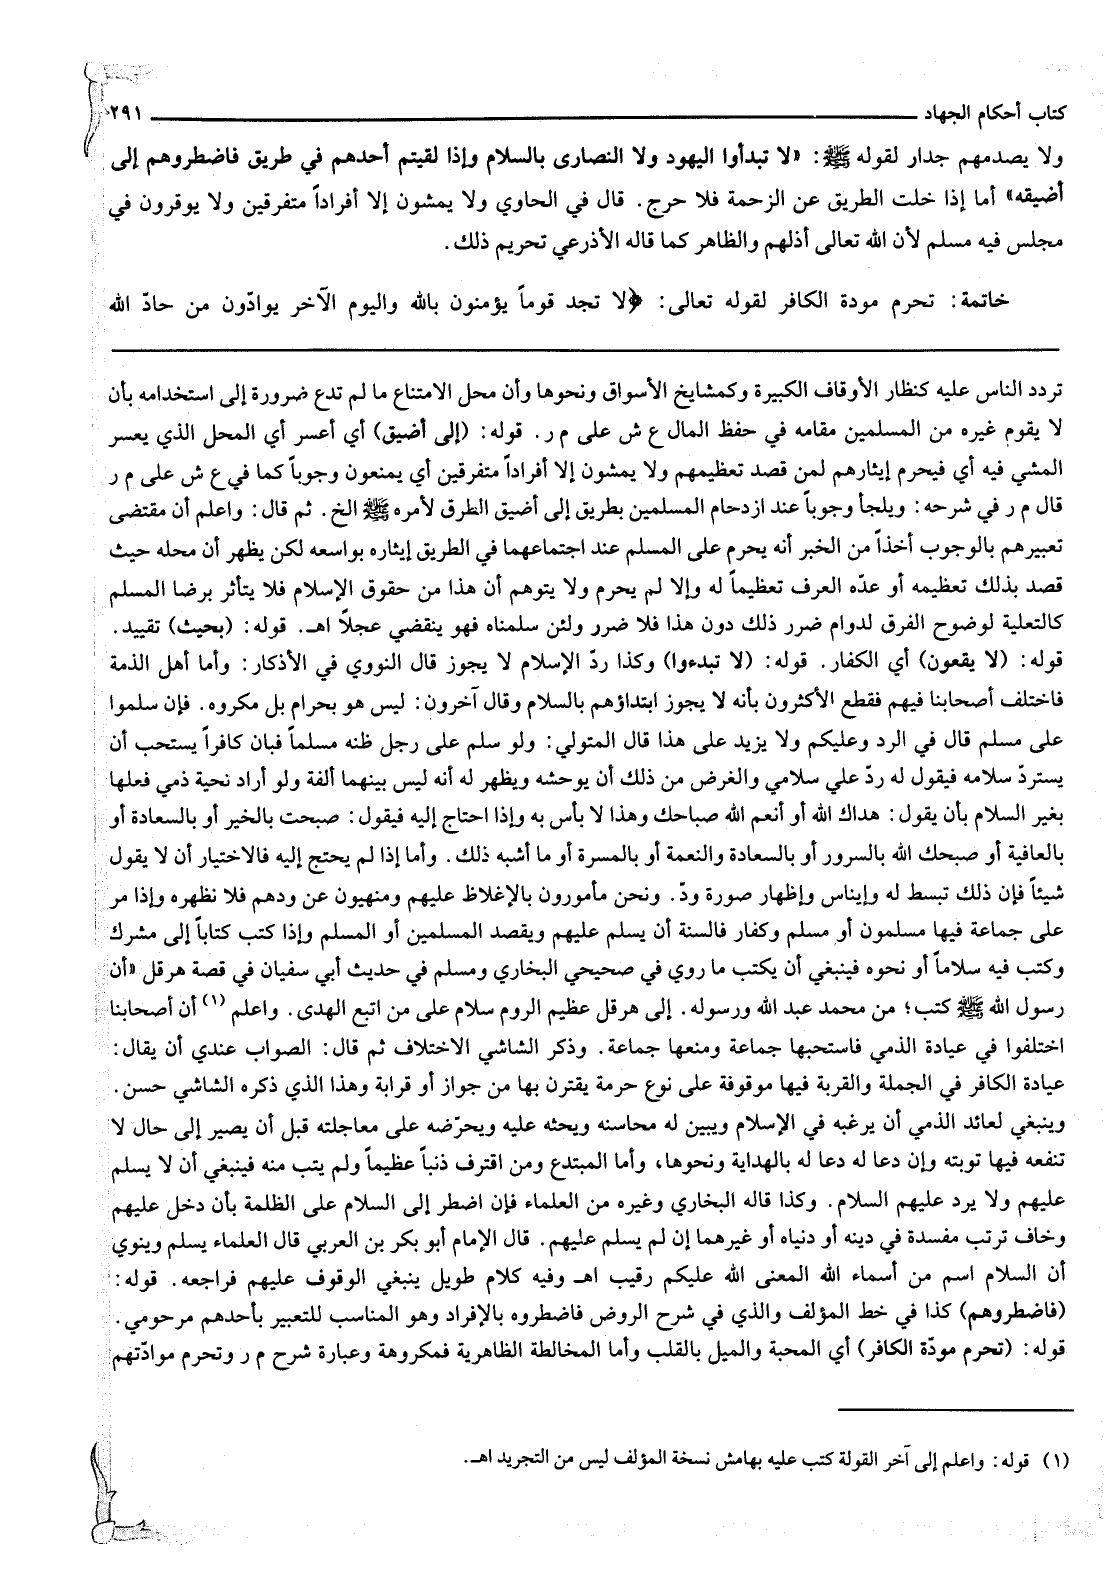 كتاب أحكام الجهاد ٢٩١
ولا يصدمهم جدار لقوله ﷺ: «لا تبدأوا اليهود ولا النصارى بالسلام وإذا لقيتم أحدهم في طريق فاضطروهم إلى
أضيقه» أما إذا خلت الطريق عن الزحمة فلا حرج. قال في الحاوي ولا يمشون إلا أفراداً متفرقين ولا يوقرون في
مجلس فيه مسلم لأن الله تعالى أذلهم والظاهر كما قاله الأذرعي تحريم ذلك.
خاتمة: تحرم مودة الكافر لقوله تعالى: ﴿لا تجد قوماً يؤمنون بالله واليوم الآخر يوادّون من حادّ الله
تردد الناس عليه كنظار الأوقاف الكبيرة وكمشايخ الأسواق ونحوها وأن محل الامتناع ما لم تدع ضرورة إلى استخدامه بأن
لا يقوم غيره من المسلمين مقامه في حفظ المال ع ش على م ر. قوله: (إلى أضيق) أي أعسر أي المحل الذي يعسر
المشي فيه أي فيحرم إيثارهم لمن قصد تعظيمهم ولا يمشون إلا أفراداً متفرقين أي يمنعون وجوباً كما في ع ش على م ر
قال م ر في شرحه: ويلجأ وجوباً عند ازدحام المسلمين بطريق إلى أضيق الطرق لأمره ﷺ الخ. ثم قال: واعلم أن مقتضى
تعبيرهم بالوجوب أخذاً من الخبر أنه يحرم على المسلم عند اجتماعهما في الطريق إيثاره بواسعه لكن يظهر أن محله حيث
قصد بذلك تعظيمه أو عدّه العرف تعظيماً له وإلا لم يحرم ولا يتوهم أن هذا من حقوق الإسلام فلا يتأثر برضا المسلم
كالتعلية لوضوح الفرق لدوام ضرر ذلك دون هذا فلا ضرر ولئن سلمناه فهو ينقضي عجلاً اهـ. قوله: (بحيث) تقييد.
قوله: (لا يقعون) أي الكفار. قوله: (لا تبدءوا) وكذا ردّ الإسلام لا يجوز قال النووي في الأذكار: وأما أهل الذمة
فاختلف أصحابنا فيهم فقطع الأكثرون بأنه لا يجوز ابتداؤهم بالسلام وقال آخرون: ليس هو بحرام بل مكروه. فإن سلموا
على مسلم قال في الرد وعليكم ولا يزيد على هذا قال المتولي: ولو سلم على رجل ظنه مسلماً فبان كافراً يستحب أن
يستردّ سلامه فيقول له ردّ علي سلامي والغرض من ذلك أن يوحشه ويظهر له أنه ليس بينهما ألفة ولو أراد نحية ذمي فعلها
بغير السلام بأن يقول: هداك الله أو أنعم الله صباحك وهذا لا بأس به وإذا احتاج إليه فيقول: صبحت بالخير أو بالسعادة أو
بالعافية أو صبحك الله بالسرور أو بالسعادة والنعمة أو بالمسرة أو ما أشبه ذلك. وأما إذا لم يحتج إليه فالاختيار أن لا يقول
شيئاً فإن ذلك تبسط له وإيناس وإظهار صورة ودّ. ونحن مأمورون بالإغلاظ عليهم ومنهيون عن ودهم فلا نظهره وإذا مر
على جماعة فيها مسلمون أو مسلم وكفار فالسنة أن يسلم عليهم ويقصد المسلمين أو المسلم وإذا كتب كتاباً إلى مشرك
وكتب فيه سلاماً أو نحوه فينبغي أن يكتب ما روي في صحيحي البخاري ومسلم في حديث أبي سفيان في قصة هرقل «أن
رسول الله ﷺ كتب؛ من محمد عبد الله ورسوله. إلى هرقل عظيم الروم سلام على من اتبع الهدى. واعلم (١) أن أصحابنا
اختلفوا في عيادة الذمي فاستحبها جماعة ومنعها جماعة. وذكر الشاشي الاختلاف ثم قال: الصواب عندي أن يقال:
عيادة الكافر في الجملة والقربة فيها موقوفة على نوع حرمة يقترن بها من جواز أو قرابة وهذا الذي ذكره الشاشي حسن.
وينبغي لعائد الذمي أن يرغبه في الإسلام ويبين له محاسنه ويحثه عليه ويحرّضه على معاجلته قبل أن يصير إلى حال لا
تنفعه فيها توبته وإن دعا له دعا له بالهداية ونحوها، وأما المبتدع ومن اقترف ذنباً عظيماً ولم يتب منه فينبغي أن لا يسلم
عليهم ولا يرد عليهم السلام. وكذا قاله البخاري وغيره من العلماء فإن اضطر إلى السلام على الظلمة بأن دخل عليهم
وخاف ترتب مفسدة في دينه أو دنياه أو غيرهما إن لم يسلم عليهم. قال الإمام أبو بكر بن العربي قال العلماء يسلم وينوي
أن السلام اسم من أسماء الله المعنى الله عليكم رقيب اهـ وفيه كلام طويل ينبغي الوقوف عليهم فراجعه. قوله:
(فاضطروهم) كذا في خط المؤلف والذي في شرح الروض فاضطروه بالإفراد وهو المناسب للتعبير بأحدهم مرحومي.
قوله: (تحرم مودّة الكافر) أي المحبة والميل بالقلب وأما المخالطة الظاهرية فمكروهة وعبارة شرح م ر وتحرم موادّتهم
(١) قوله: واعلم إلى آخر القولة كتب عليه بهامش نسخة المؤلف ليس من التجريد اهـ.